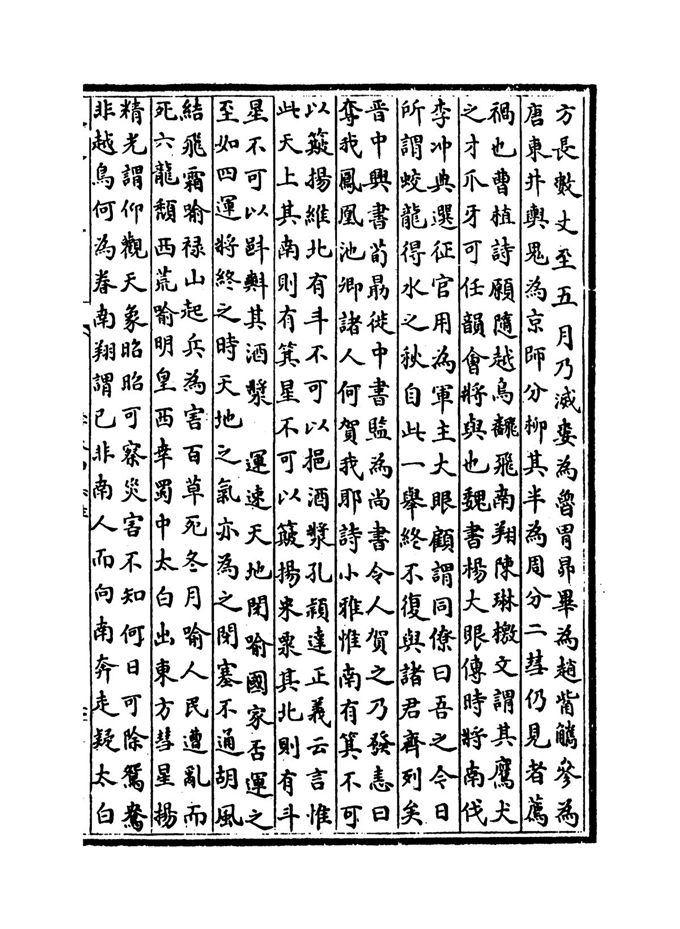 方長數丈至五月乃滅婁為魯胃昴畢為趙觜觿參為
唐東井輿鬼為京師分柳其半為周分二彗仍見者薦
禍也曹植詩願隨越鳥飜飛南翔陳琳檄文謂其鷹犬
之才爪牙可任韻會將與也魏書楊大眼傳時將南伐
李冲典選征官用為軍主大眼顧謂同僚曰吾之今日
所謂蛟龍得水之秋自此一舉終不復與諸君齊列矣
晉中興書荀朂徙中書監為尚書令人賀之乃發恚曰
奪我鳳凰池卿諸人何賀我耶詩小雅惟南有箕不可
以簸揚維北有斗不可以挹酒漿孔穎達正義云言惟
此天上其南則有箕星不可以簸揚米粟其北則有斗
星不可以㪷㪺其酒漿　運速天地閉喻國家否運之
至如四運將終之時天地之氣亦為之閉塞不通胡風
結飛霜喻禄山起兵為害百草死冬月喻人民遭亂而
死六龍頹西荒喻明皇西幸蜀中太白出東方彗星揚
精光謂仰觀天象昭昭可察災害不知何日可除鴛鴦
非越鳥何為眷南翔謂已非南人而向南奔走疑太白